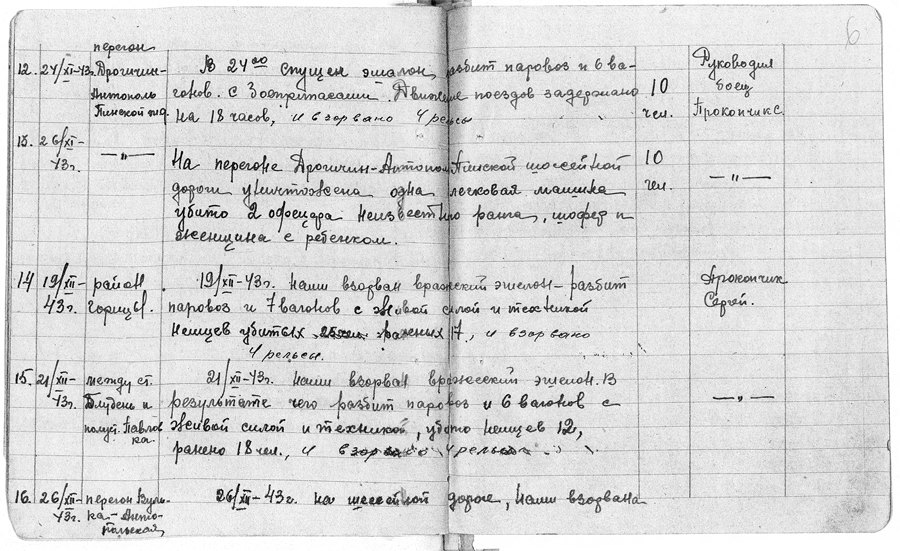 6
перегон
12. 24/XII-43г. Дрогичин- В 24⁰⁰ спущен эшалон, разбит паровоз и 6 ва- Руководил
Антополь гонов. с боеприпасами. Движение поездов задержано 10 боец
Пинской на 18 часов, и взорвано 4 рельсы чел. Прокопчик С
13. 26/XII-
43г. —〃— На перегоне Дрогичин-Антополь Пинской шоссейной 10
дороги уничтожена одна легковая машина чел. —〃—
убито 2 офецера неизвестного ранга, шофер и
женщина с ребенком.
14 19/XII- район 19/XII-43г. наши взорван вражеский эшелон-разбит Прокопчик
43г. паровоз и 7 вагонов с живой силой и техникой Сергей.
немцев убитых раненых 17, и взорвано
4 рельсы.
15. 21/XII- между ст. 21/XII-43г. наши взорван вражеский эшелон. В
43г. Блудень и результате чего разбит паровоз и 6 вагонов с —〃—
полуст. Павлов живой силой и техникой, убито немцев 12,
ка. ранено 18 чел., и взорвано 4 рельсы
16. 26/XII- перегон Вуль- 26/XII-43г. на шоссейной дороге, наши взорвана
43г. ка-Анто-
польская,